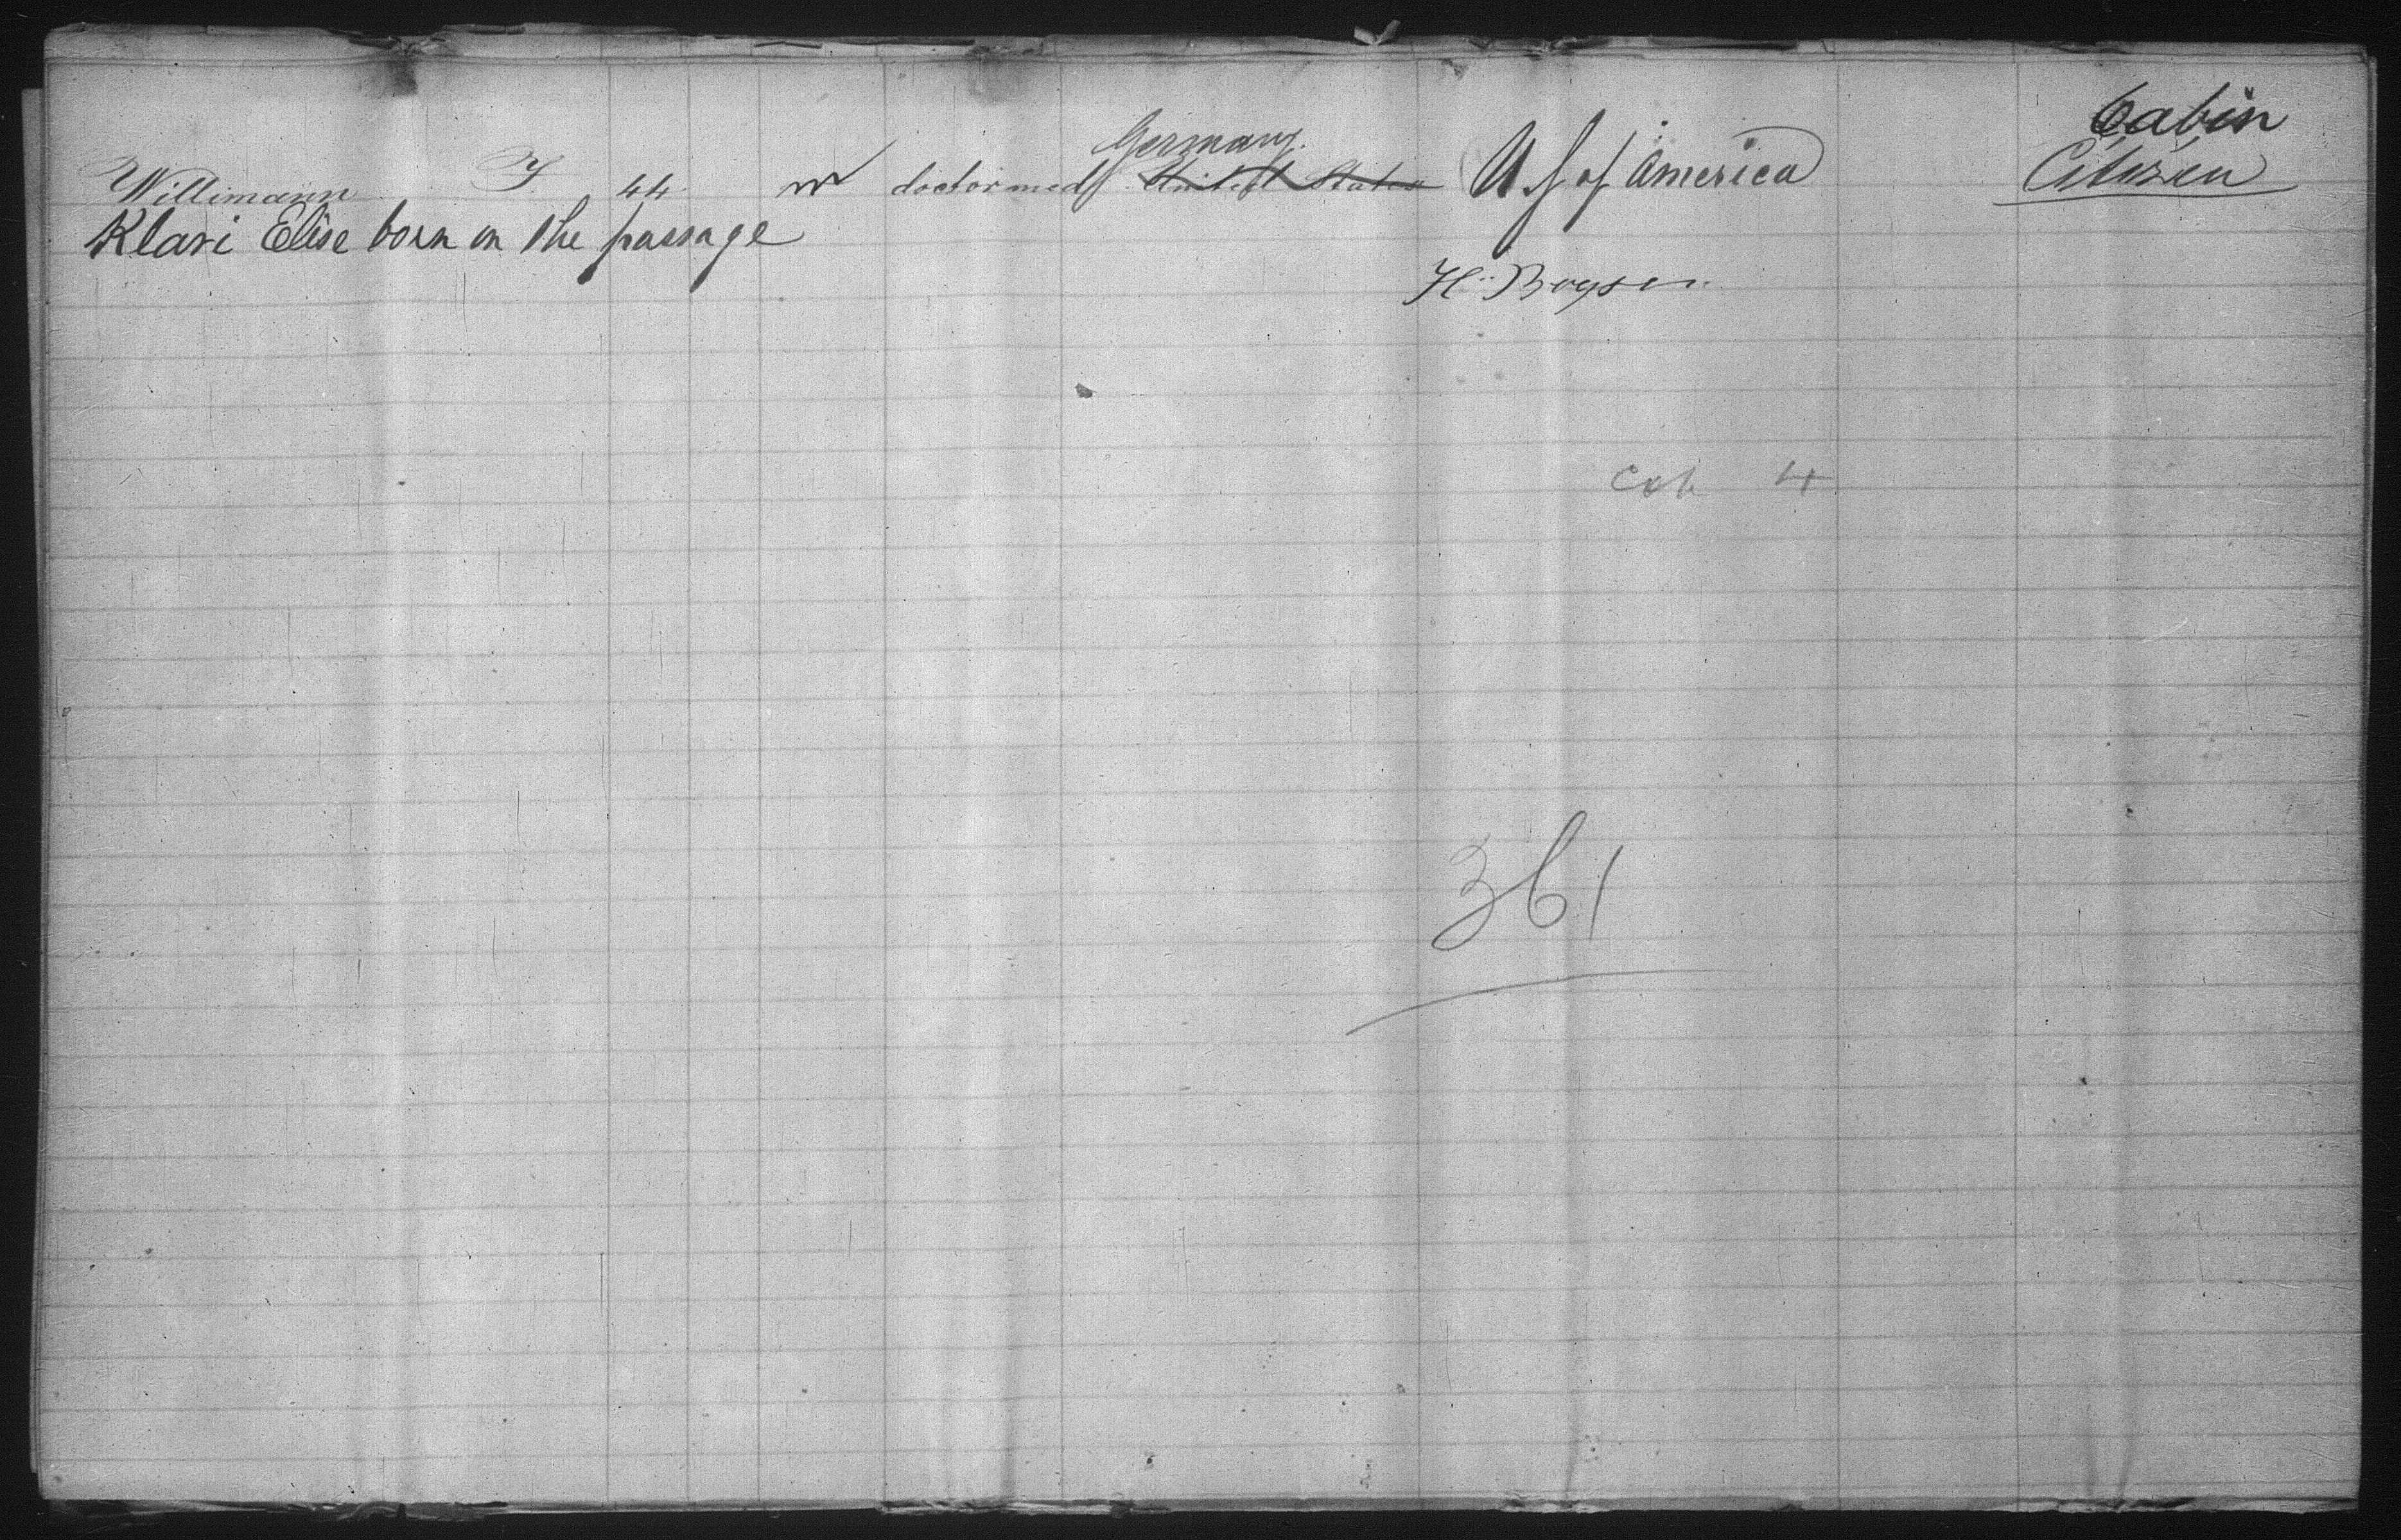 Cabin
Germany.
Willimann J. 44 m doctor med United States U. S. of America Citizen
Klari Elise born on the passage
H. Boysen
Cab 4
361